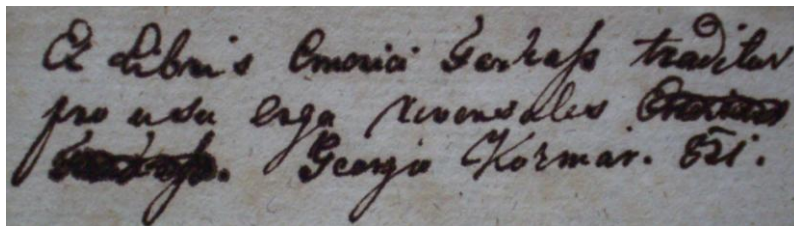 Ex Libris Emerici Farkass traditur
pro usu erga reversales
Georgio Kozmar. 821.